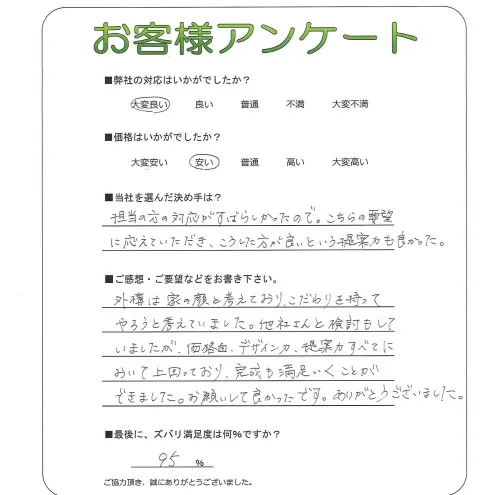 お客様アンケート
■弊社の対応はいかがでしたか?
大変良い 良い 普通 不満 大変不満
■価格はいかがでしたか?
大変安い 安い 普通 高い 大変高い
■当社を選んだ決め手は?
担当の方の対応がすばらしかったので。こちらの要望
に応えていただき、こうした方が良いという提案力も良かった。
■ご感想・ご要望などをお書き下さい。
外構は家の顔と考えており、こだわりを持って
やろうと考えていました。他社さんと検討もして
いましたが、価格面、デザイン力、提案力すべてに
おいて上回っており、完成も満足いくことが
できました。お願いして良かったです。ありがとうございました。
■最後に、ズバリ満足度は何%ですか?
95 %
ご協力頂き、誠にありがとうございました。